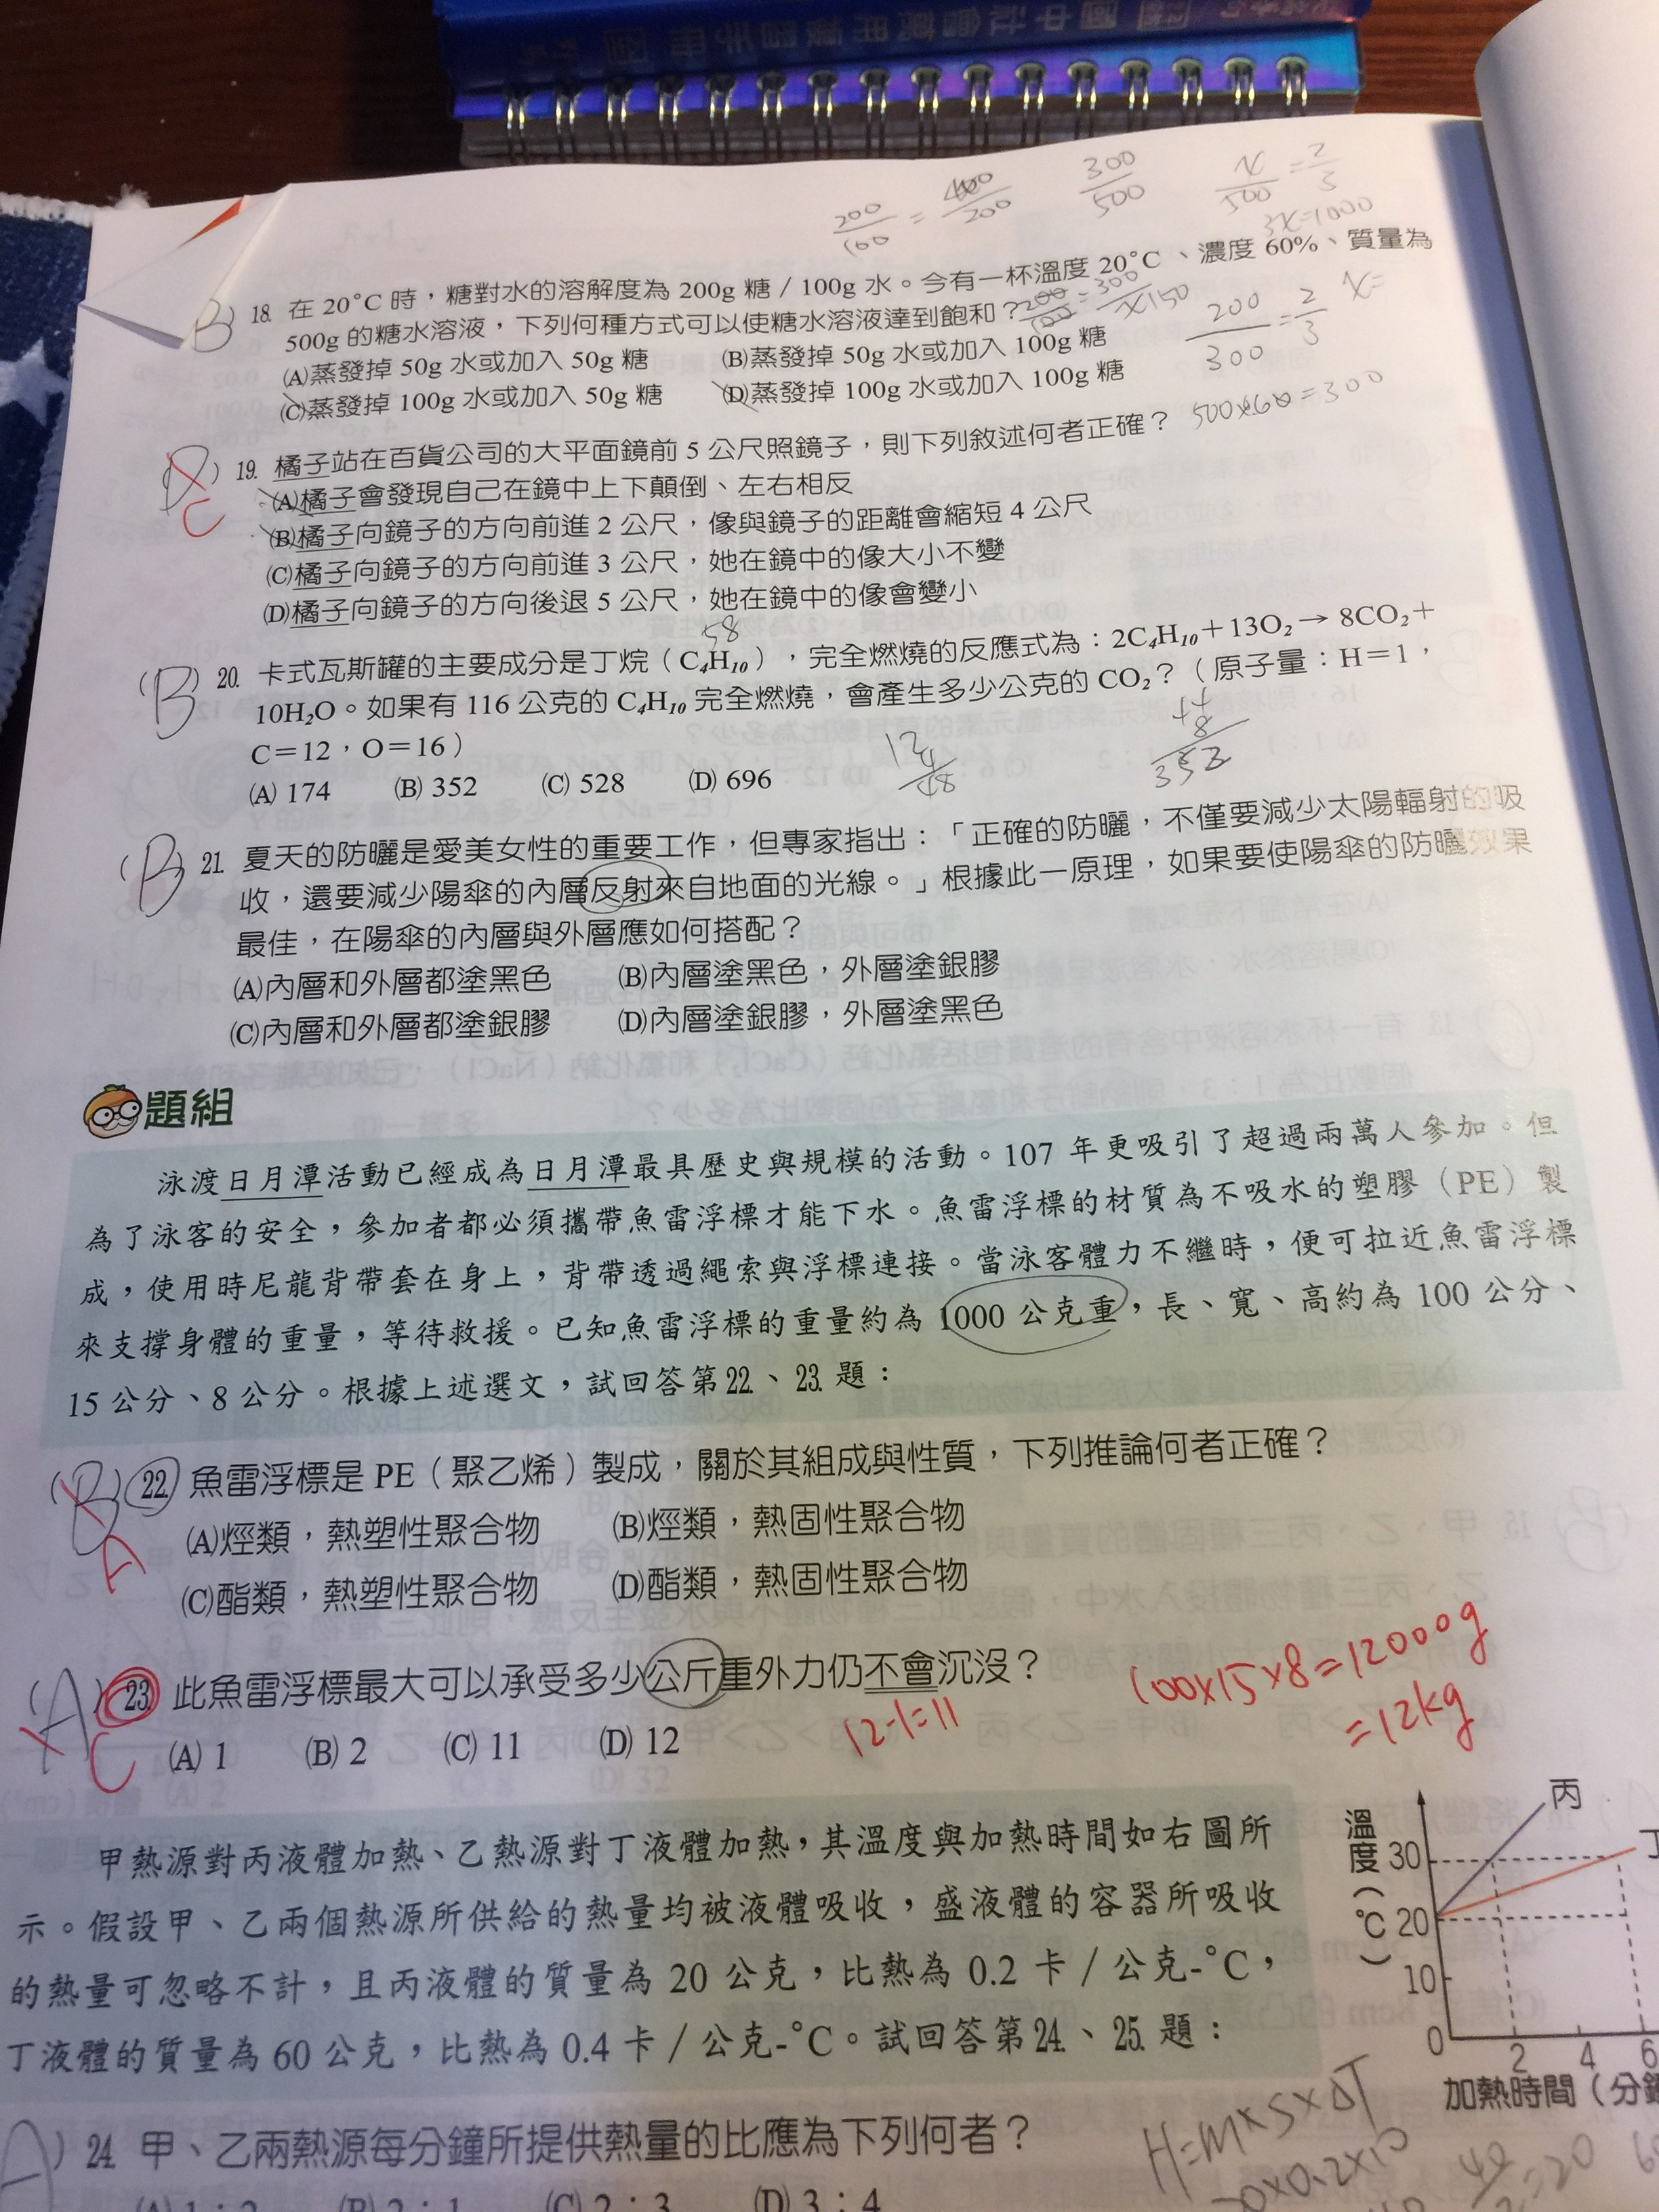 200/100 = 400/200
300/500
x/500 = 2/3
3x=1000
B
18. 在 20°C 時，糖對水的溶解度為 200g 糖 / 100g 水。今有一杯溫度 20°C 、濃度 60%、質量為
500g 的糖水溶液，下列何種方式可以使糖水溶液達到飽和？
200/100 = 300/x 150
200/300 = 2/3
x=
(A)蒸發掉 50g 水或加入 50g 糖 (B)蒸發掉 50g 水或加入 100g 糖
(C)蒸發掉 100g 水或加入 50g 糖 (D)蒸發掉 100g 水或加入 100g 糖
D C
19. 橘子站在百貨公司的大平面鏡前 5 公尺照鏡子，則下列敘述何者正確？
(A)橘子會發現自己在鏡中上下顛倒、左右相反
(B)橘子向鏡子的方向前進 2 公尺，像與鏡子的距離會縮短 4 公尺
(C)橘子向鏡子的方向前進 3 公尺，她在鏡中的像大小不變
(D)橘子向鏡子的方向後退 5 公尺，她在鏡中的像會變小
58
(B)
20. 卡式瓦斯罐的主要成分是丁烷（C₄H₁₀），完全燃燒的反應式為：2C₄H₁₀＋13O₂→ 8CO₂＋
10H₂O。如果有 116 公克的 C₄H₁₀ 完全燃燒，會產生多少公克的 CO₂？（原子量：H＝1，
C＝12，O＝16）
44
8
352
12
4
48
(A) 174 (B) 352 (C) 528 (D) 696
(B)
21. 夏天的防曬是愛美女性的重要工作，但專家指出：「正確的防曬，不僅要減少太陽輻射的吸
收，還要減少陽傘的內層反射來自地面的光線。」根據此一原理，如果要使陽傘的防曬效果
最佳，在陽傘的內層與外層應如何搭配？
(A)內層和外層都塗黑色 (B)內層塗黑色，外層塗銀膠
(C)內層和外層都塗銀膠 (D)內層塗銀膠，外層塗黑色
題組
泳渡日月潭活動已經成為日月潭最具歷史與規模的活動。107 年更吸引了超過兩萬人參加。但
為了泳客的安全，參加者都必須攜帶魚雷浮標才能下水。魚雷浮標的材質為不吸水的塑膠（PE）製
成，使用時尼龍背帶套在身上，背帶透過繩索與浮標連接。當泳客體力不繼時，便可拉近魚雷浮標
來支撐身體的重量，等待救援。已知魚雷浮標的重量約為 1000 公克重，長、寬、高約為 100 公分、
15 公分、8 公分。根據上述選文，試回答第22.、23.題：
(B) A
22. 魚雷浮標是 PE（聚乙烯）製成，關於其組成與性質，下列推論何者正確？
(A)烴類，熱塑性聚合物 (B)烴類，熱固性聚合物
(C)酯類，熱塑性聚合物 (D)酯類，熱固性聚合物
(A) C
23. 此魚雷浮標最大可以承受多少公斤重外力仍不會沉沒？
(A) 1 (B) 2 (C) 11 (D) 12
12-1=11
100x15x8=12000g
=12kg
甲熱源對丙液體加熱、乙熱源對丁液體加熱，其溫度與加熱時間如右圖所
示。假設甲、乙兩個熱源所供給的熱量均被液體吸收，盛液體的容器所吸收
的熱量可忽略不計，且丙液體的質量為 20 公克，比熱為 0.2 卡 / 公克-°C，
丁液體的質量為 60 公克，比熱為 0.4 卡 / 公克-°C。試回答第24.、25.題：
溫度(°C)
30
20
10
0
2 4 6
丙
丁
加熱時間（分鐘
A）
24. 甲、乙兩熱源每分鐘所提供熱量的比應為下列何者？
H=M×S×ΔT
(A) 1：2 (B) 2：1 (C) 2：3 (D) 3：4